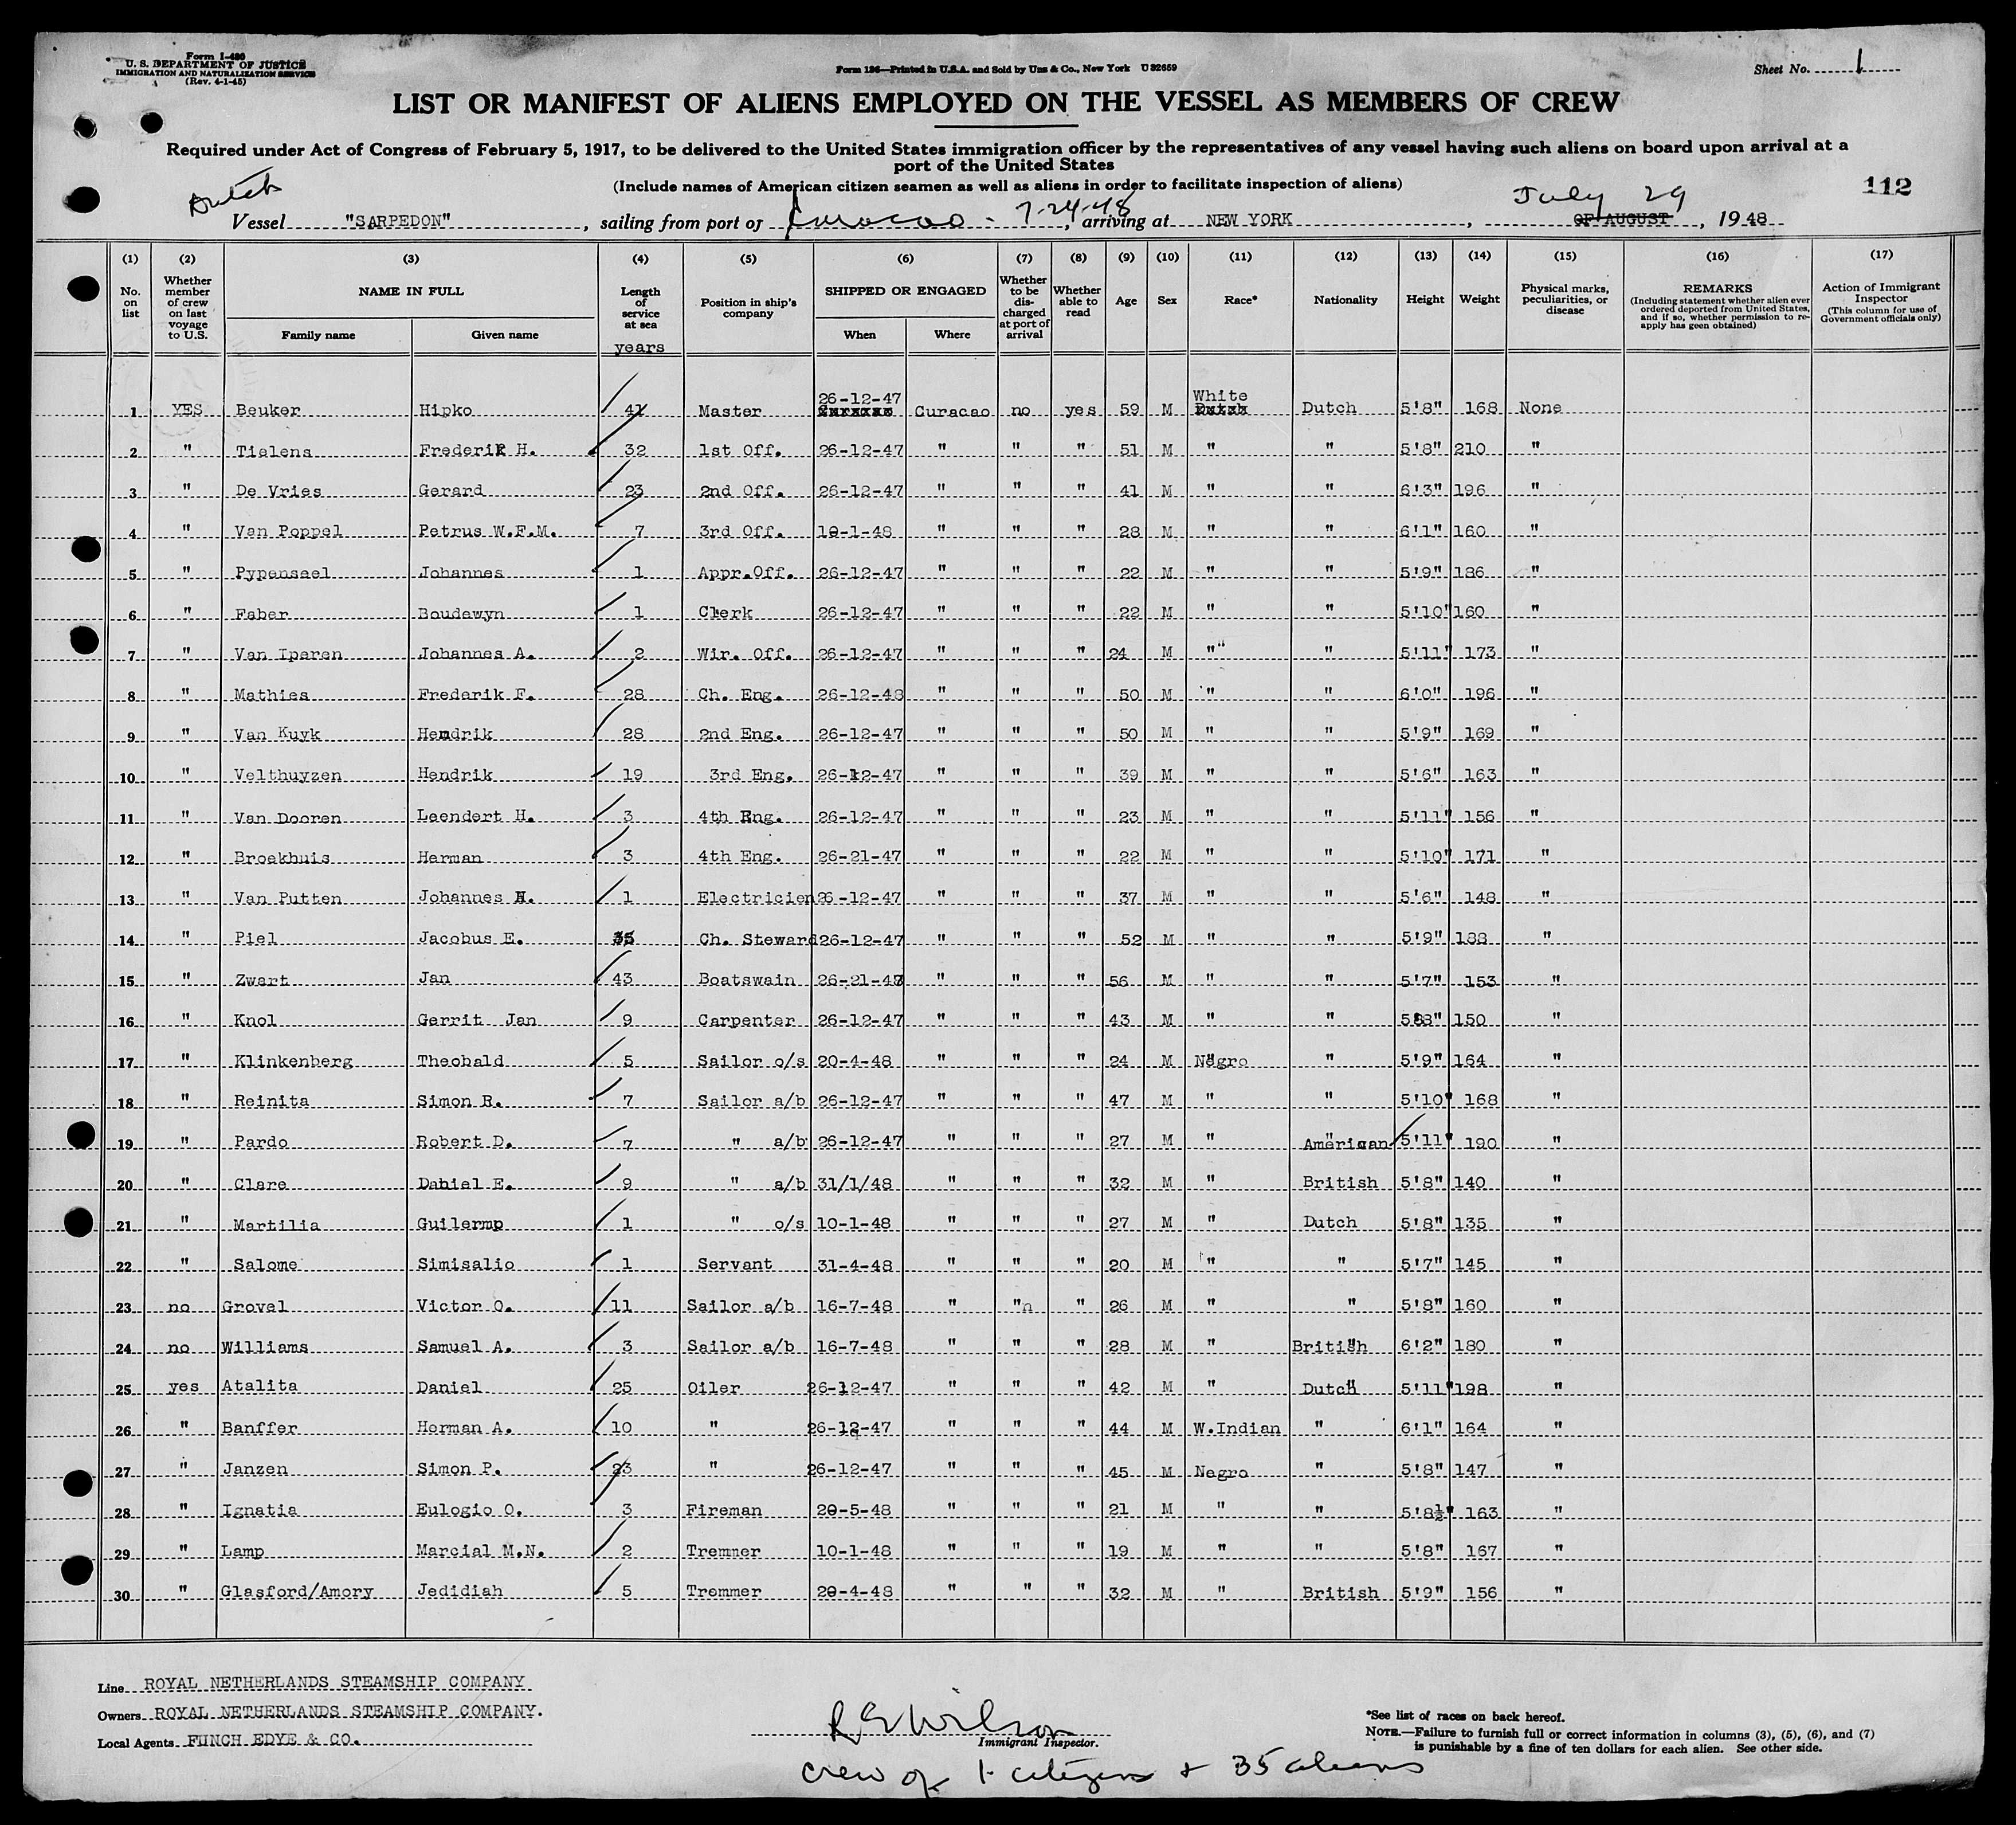 Form I-480
U. S. DEPARTMENT OF JUSTICE
IMMIGRATION AND NATURALIZATION SERVICE
(Rev. 4-1-45)
Form 186—Printed in U.S.A. and Sold by Unz & Co., New York U 32659
Sheet No. 1
LIST OR MANIFEST OF ALIENS EMPLOYED ON THE VESSEL AS MEMBERS OF CREW
Required under Act of Congress of February 5, 1917, to be delivered to the United States immigration officer by the representatives of any vessel having such aliens on board upon arrival at a
port of the United States
(Include names of American citizen seamen as well as aliens in order to facilitate inspection of aliens)
112
Dutch
Vessel "SARPEDON", sailing from port of Curacao - 7-24-48, arriving at NEW YORK, July 29 OF AUGUST, 1948
(1) (2) (3) (4) (5) (6) (7) (8) (9) (10) (11) (12) (13) (14) (15) (16) (17)
No. on list
Whether member of crew on last voyage to U.S.
NAME IN FULL
Family name
Given name
Length of service at sea
years
Position in ship's company
SHIPPED OR ENGAGED
When
Where
Whether to be discharged at port of arrival
Whether able to read
Age
Sex
Race*
Nationality
Height
Weight
Physical marks, peculiarities, or disease
REMARKS
(Including statement whether alien ever ordered deported from United States, and if so, whether permission to re-apply has geen obtained)
Action of Immigrant Inspector
(This column for use of Government officials only)
1 YES Beuker Hipko 41 Master 26-12-47 Curacao no yes 59 M White Dutch 5'8" 168 None
2 " Tielens Frederik H. 32 1st Off. 26-12-47 " " " 51 M " " 5'8" 210 "
3 " De Vries Gerard 23 2nd Off. 26-12-47 " " " 41 M " " 6'3" 196 "
4 " Van Poppel Petrus W.F.M. 7 3rd Off. 10-1-48 " " " 28 M " " 6'1" 160 "
5 " Pypenseel Johannes 1 Appr.Off. 26-12-47 " " " 22 M " " 5'9" 186 "
6 " Faber Boudewyn 1 Clerk 26-12-47 " " " 22 M " " 5'10" 160 "
7 " Van Iperen Johannes A. 2 Wir. Off. 26-12-47 " " " 24 M " " 5'11" 173 "
8 " Mathies Frederik F. 28 Ch. Eng. 26-12-48 " " " 50 M " " 6'0" 196 "
9 " Van Kuyk Hendrik 28 2nd Eng. 26-12-47 " " " 50 M " " 5'9" 169 "
10 " Velthuyzen Hendrik 19 3rd Eng. 26-12-47 " " " 39 M " " 5'6" 163 "
11 " Van Dooren Leendert H. 3 4th Eng. 26-12-47 " " " 23 M " " 5'11" 156 "
12 " Broekhuis Herman 3 4th Eng. 26-21-47 " " " 22 M " " 5'10" 171 "
13 " Van Putten Johannes H. 1 Electricien 26-12-47 " " " 37 M " " 5'6" 148 "
14 " Piel Jacobus E. 35 Ch. Steward 26-12-47 " " " 52 M " " 5'9" 188 "
15 " Zwart Jan 43 Boatswain 26-21-47 " " " 56 M " " 5'7" 153 "
16 " Knol Gerrit Jan 9 Carpenter 26-12-47 " " " 43 M " " 150 "
17 " Klinkenberg Theobald 5 Sailor o/s 20-4-48 " " " 24 M Negro " 5'9" 164 "
18 " Reinita Simon R. 7 Sailor a/b 26-12-47 " " " 47 M " " 5'10" 168 "
19 " Pardo Robert D. 7 " a/b 26-12-47 " " " 27 M " American 5'11" 190 "
20 " Clare Daniel E. 9 " a/b 31/1/48 " " " 32 M " British 5'8" 140 "
21 " Martilia Guilermo 1 " o/s 10-1-48 " " " 27 M " Dutch 5'8" 135 "
22 " Salome Simisalio 1 Servant 31-4-48 " " " 20 M " " 5'7" 145 "
23 no Grovel Victor O. 11 Sailor a/b 16-7-48 " " " 26 M " " 5'8" 160 "
24 no Williams Samuel A. 3 Sailor a/b 16-7-48 " " " 28 M " British 6'2" 180 "
25 yes Atalita Daniel 25 Oiler 26-12-47 " " " 42 M " Dutch 5'11" 198 "
26 " Banffer Horman A. 10 " 26-12-47 " " " 44 M W.Indian " 6'1" 164 "
27 " Janzen Simon P. 23 " 26-12-47 " " " 45 M Negro " 5'8" 147 "
28 " Ignatia Eulogio O. 3 Fireman 20-5-48 " " " 21 M " " 5'8½" 163 "
29 " Lamp Marcial M.N. 2 Tremmer 10-1-48 " " " 19 M " " 5'8" 167 "
30 " Glasford/Amory Jedidiah 5 Tremmer 20-4-48 " " " 32 M " British 5'9" 156 "
Line ROYAL NETHERLANDS STEAMSHIP COMPANY
Owners ROYAL NETHERLANDS STEAMSHIP COMPANY.
Local Agents FUNCH EDYE & CO.
R E Wilson
Immigrant Inspector.
crew of 1 citizens + 35 aliens
*See list of races on back hereof.
NOTE.—Failure to furnish full or correct information in columns (3), (5), (6), and (7)
is punishable by a fine of ten dollars for each alien. See other side.